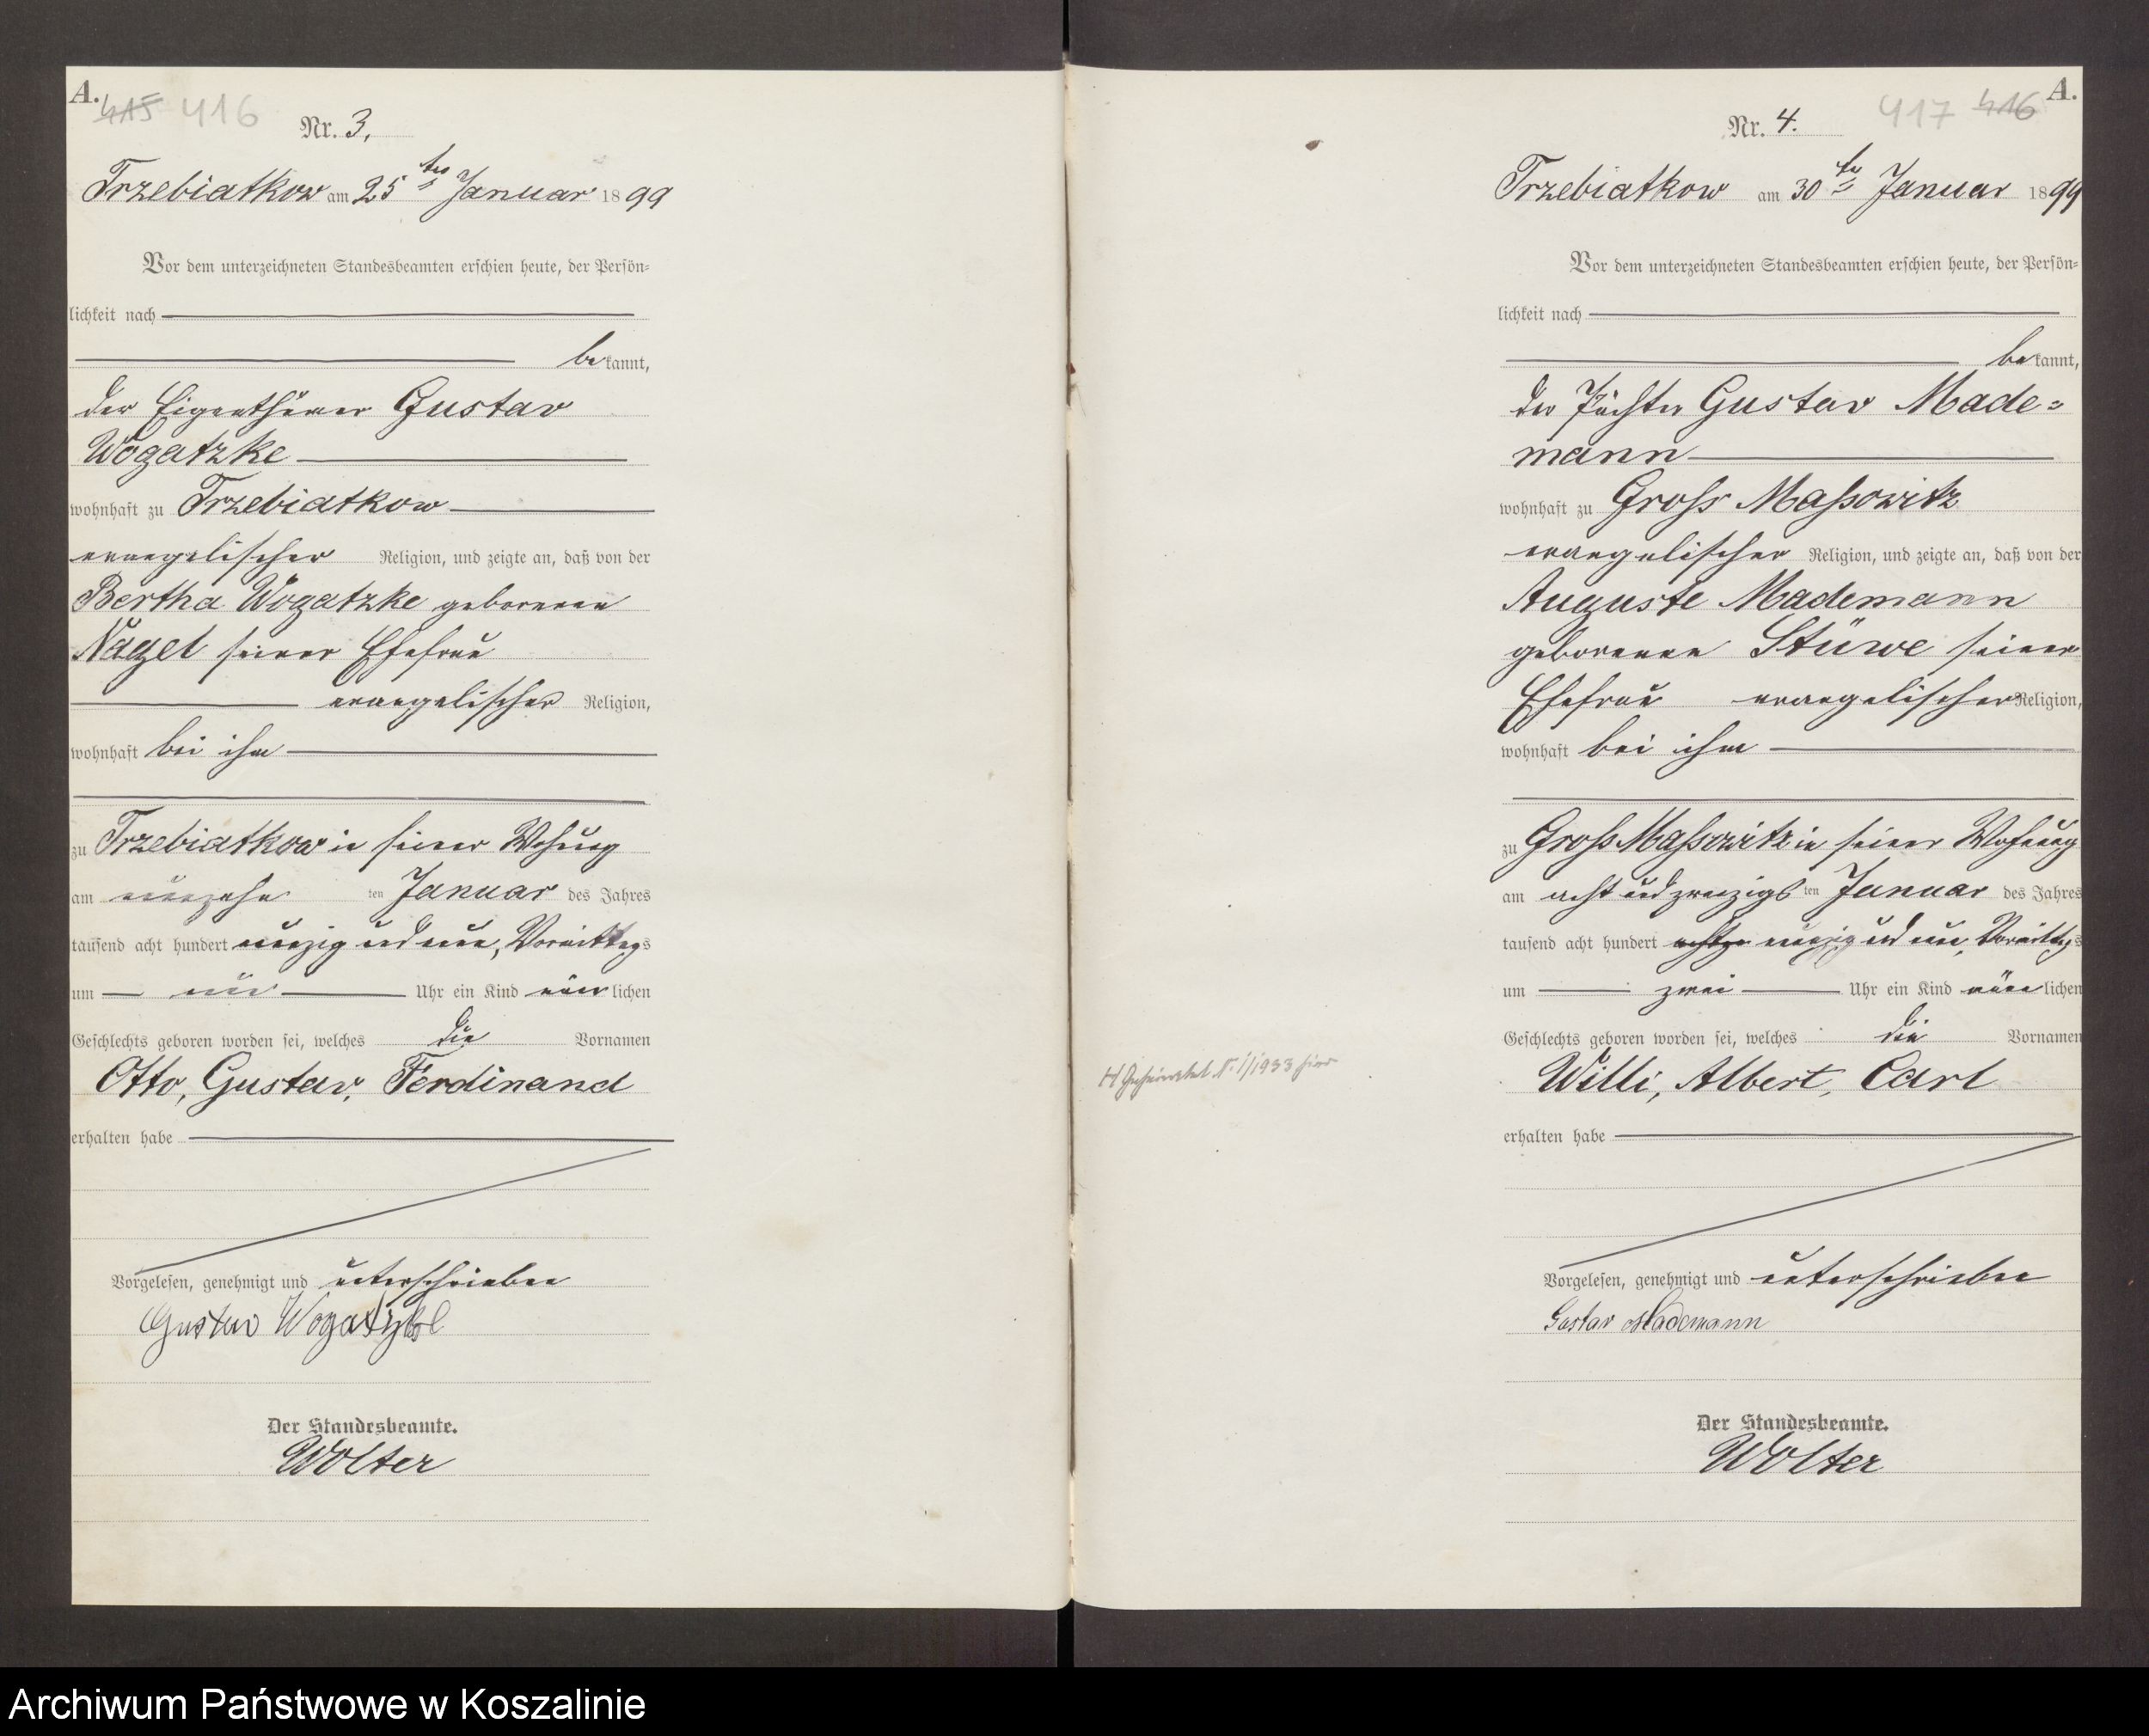 A.
415 416
Nr. 3,
Trzebiatkow am 25 ten Januar 1899
Vor dem unterzeichneten Standesbeamten erschien heute, der Persön=
lichkeit nach
bekannt,
der Eigenthümer Gustav
Wogatzke
wohnhaft zu Trzebiatkow
evangelischer Religion, und zeigte an, daß von der
Bertha Wogatzke geborenen
Nagel seiner Ehefrau
evangelischer Religion,
wohnhaft bei ihm
zu Trzebiatkow in seiner Wohnung
am neunzehn ten Januar des Jahres
tausend acht hundert neunzig und neun, Vormittags
um Uhr ein Kind männlichen
Geschlechts geboren worden sei, welches die Vornamen
Otto, Gustav, Ferdinand
erhalten habe
Vorgelesen, genehmigt und unterschrieben
Gustav Wogatzke
Der Standesbeamte.
Wolter
A.
417 416
Nr. 4.
Trzebiatkow am 30 ten Januar 1899
Vor dem unterzeichneten Standesbeamten erschien heute, der Persön=
lichkeit nach
bekannt,
der Pächter Gustav Made=
mann
wohnhaft zu Gross Massowitz
evangelischer Religion, und zeigte an, daß von der
Auguste Mademann
geborenen Stüwe seiner
Ehefrau evangelischer Religion,
wohnhaft bei ihm
zu Gross Massowitz in seiner Wohnung
am acht und zwanzigs ten Januar des Jahres
tausend acht hundert neunzig und neun, Vormittags
um zwei Uhr ein Kind männlichen
Geschlechts geboren worden sei, welches die Vornamen
Willi, Albert, Carl
erhalten habe
Vorgelesen, genehmigt und unterschrieben
Gustav Mademann
Der Standesbeamte.
Wolter
1/1933 hier
Archiwum Państwowe w Koszalinie